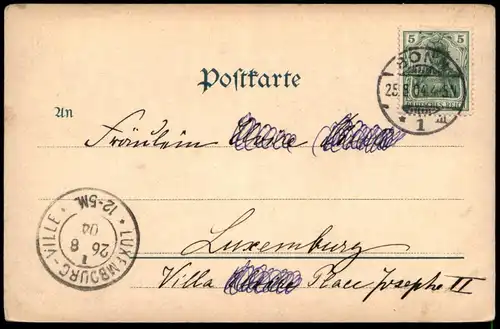 5 5
DEUTSCHES REICH
BONN
25.8.04.4-5N
* 1 m
Postkarte
An
Fräulein
LUXEMBOURG-VILLE
12-5M
26 8
04
1
Luxemburg
Villa Place Josephe II